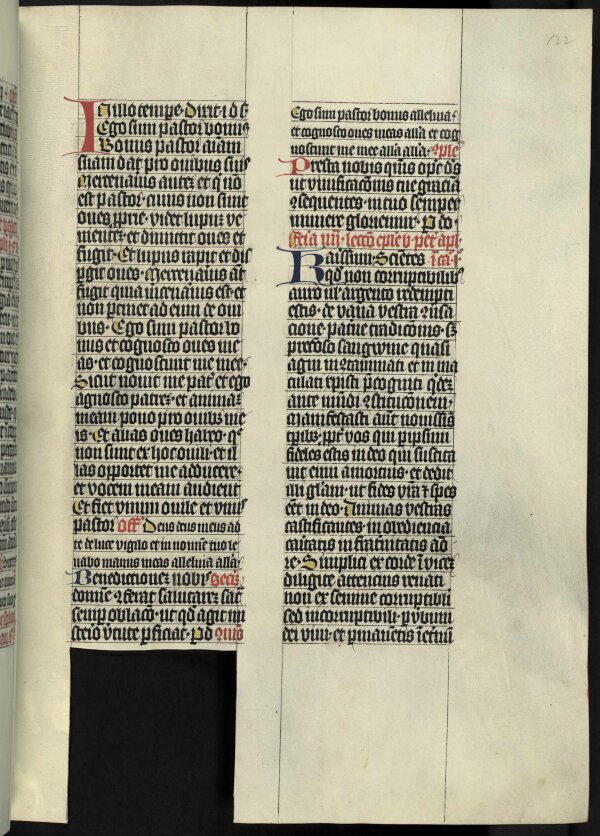 132
In illo tempe· Dixit ihs
Ego sum pastor bonus
Bonus pastor aīam
suam dat pro ouibus suis
Mercenarius autez et q nō
est pastor· cuius non sunt
oues pprie· videt lupuz ve
nientez· et dimittit oues et
fugit· Et lupus rapit et dis
pgit oues· Mercenarius at
fugit quia mcenarius est· et
non ptinet ad eum de oui
bus· Ego sum pastor bo
nus et cognosco oues me
as· et cognoscunt me mee·
Sicut nouit me pat et ego
agnosco patrez· et animaz
meam pono pro ouibz me
is· Et alias oues habeo· q
non sunt ex hoc ouili· et il
las oportet me adducere·
et vocem meam audient
Et fiet vnum ouile et vnus
pastor off Deus deus meus ad
te de luce vigilo et in nomine tuo le
uabo manus meas alleluia alla·
Benedictionez nobis
domine sal
semp oblaco· ut qd agit mi
sterio vtute pficiat· pd
Ego sum pastor bonus alleluia
et cognosco oues meas alla et cog
noscunt me mee alla alla·
Presta nobis qms opc ds
ut viuificacionis tue graciā
9sequentes· in tuo semper
munere gloriemur· p do·
feria iiii· lecco eple b· pet apl
Karissimi· Scietes ic̄a·i·
qd non corruptibilib
auro ul argento redempti
estis· de vana vestra 9usa
cione· paterne tradicionis· sz
precioso sangwine quasi
agni in9taminati et in ma
culati xpisti pcogniti qdez
ante mūdi 9stitucionem·
Manifestati aut nouissis
tpibz· ppt vos qui p ipsum
fideles estis in deo qui suscita
uit eum a mortuis· et dedit
illi gliam· ut fides vra et spes
eet in deo· Animas vestras
castificantes in obediencia
caritatis in frātnitatis ad
re· Simplici ex corde īuicez
diligite attencius renati
non ex semine corruptibili
sed incorruptibili p vbum
dei viui· et pmanetis in etnū